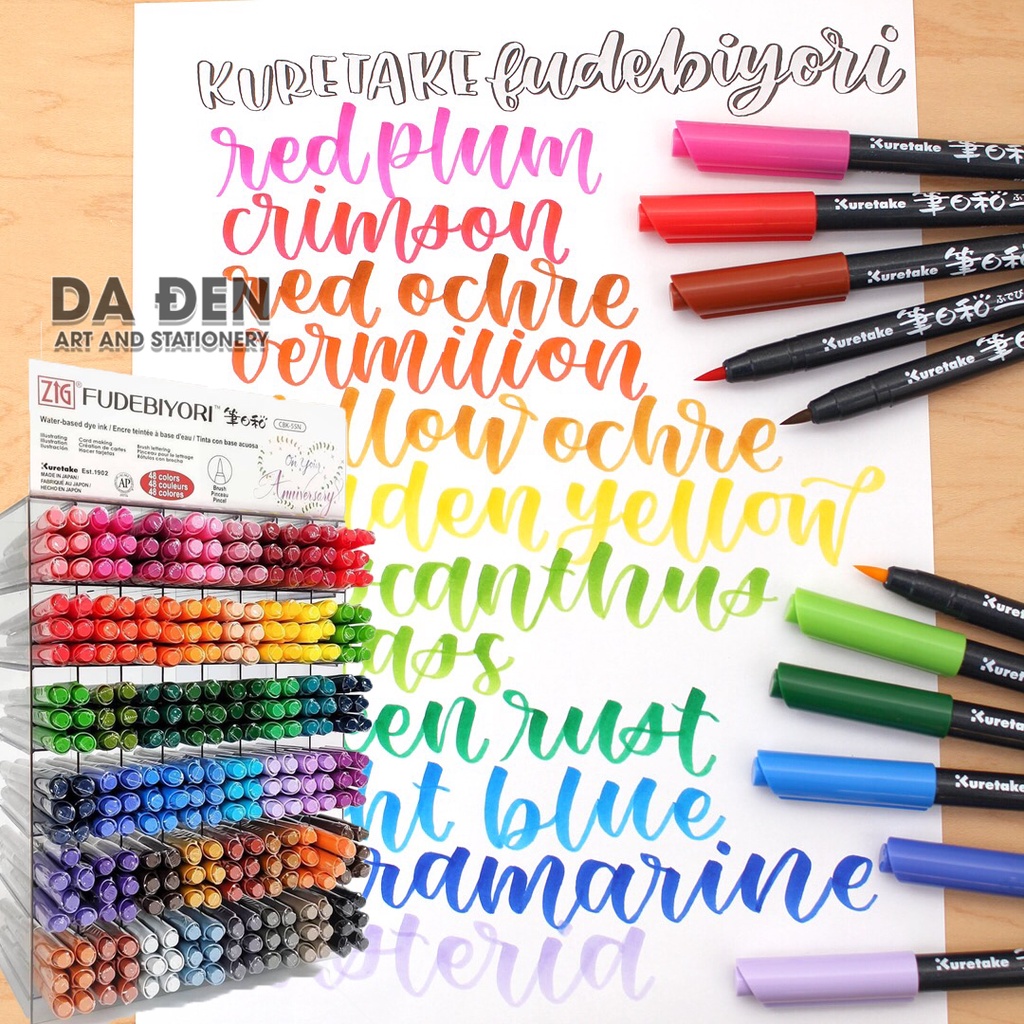 KURETAKE fudebiyori
red plum
crimson
red ochre
vermilion
llow ochre
den yellow
canthus
ass
en rust
nt blue
ramarine
steria
DA ĐEN
ART AND STATIONERY
ZIG® FUDEBIYORI™ 筆日和 CBK-55N
Water-based dye ink / Encre teintée à base d'eau / Tinta con base acuosa
Illustrating
Illustration
Ilustración
Card making
Création de cartes
Hacer tarjetas
Brush lettering
Pinceau pour le lettrage
Kuretake Est.1902
MADE IN JAPAN /
FABRIQUÉ AU JAPON /
HECHO EN JAPÓN
AP
48 colors
48 couleurs
48 colores
Brush
Pinceau
Pincel
On Your
Anniversary
Kuretake 筆日和
Kuretake 筆日和
Kuretake 筆日和
Kuretake 筆日和
Kuretake 筆
Kuretake
Kuretake
Kuretake
Kuretake
Kuretake
Kuretake